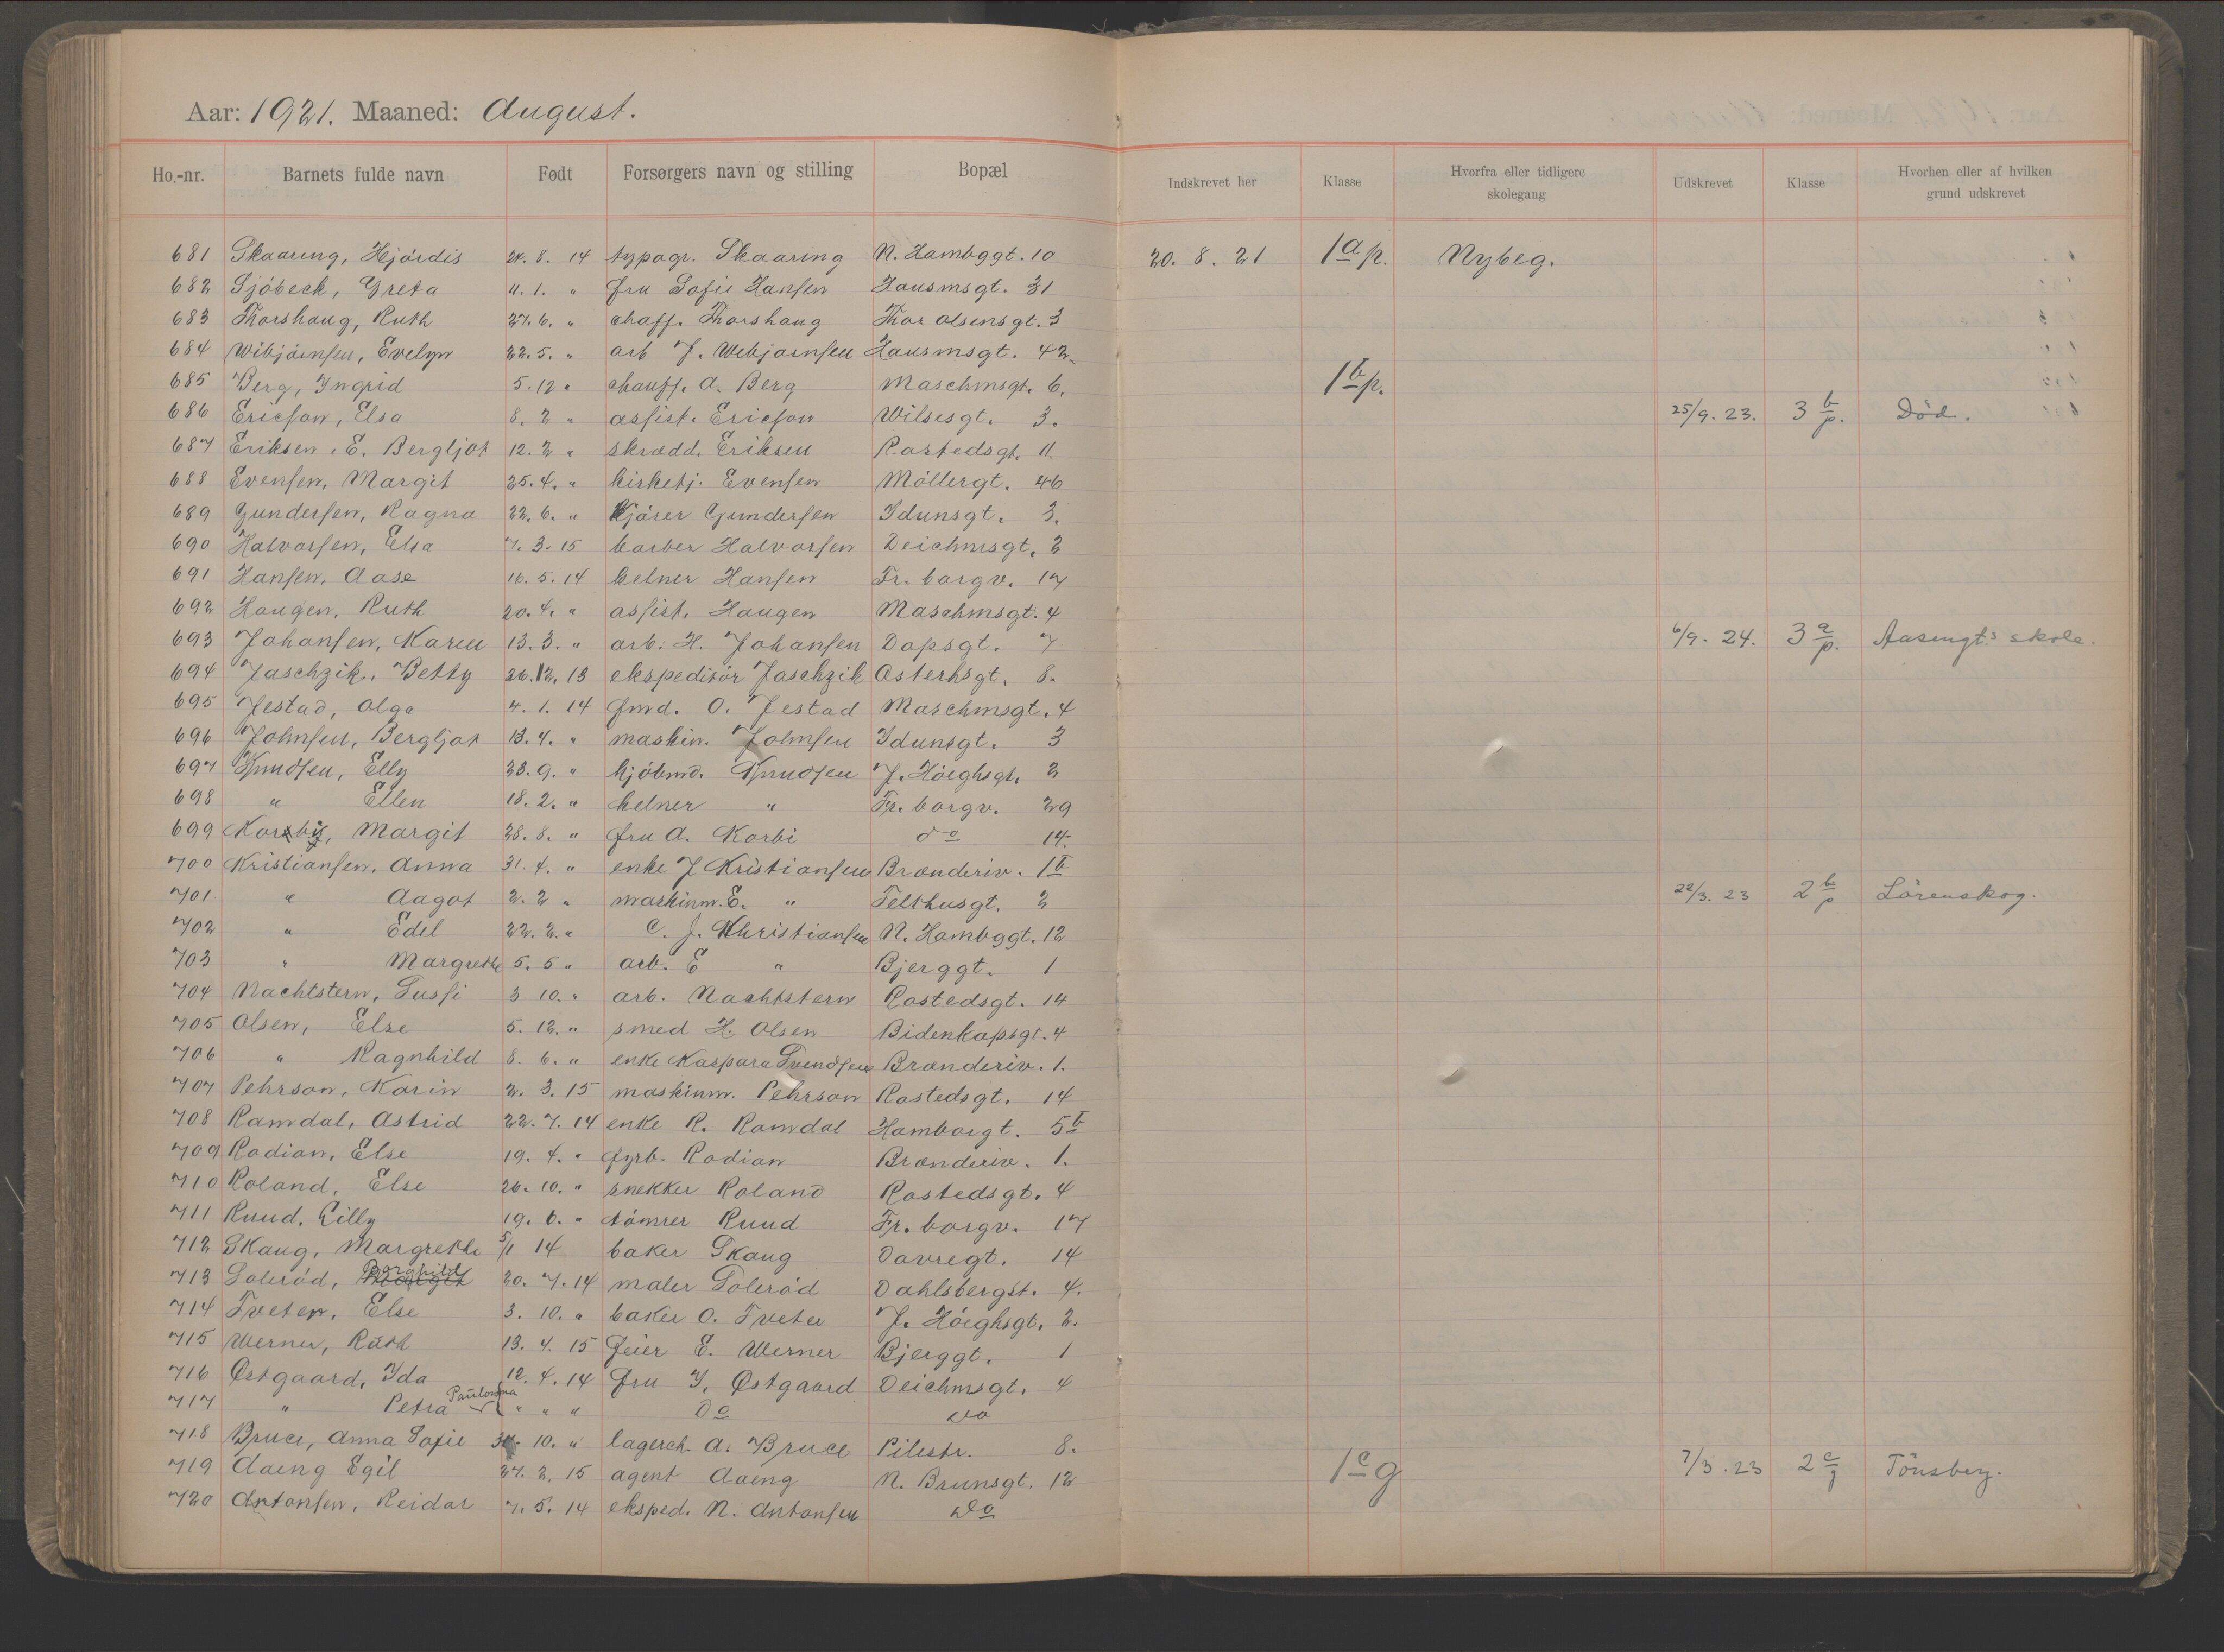 Aar: 1921. Maaned: August.
Ho.-nr. Barnets fulde navn Født Forsørgers navn og stilling Bopæl Indskrevet her Klasse Hvorfra eller tidligere skolegang Udskrevet Klasse Hvorhen eller af hvilken grund udskrevet
681 Skaaring, Hjördis 24. 8. 14 typogr. Skaaring N. Hambggt. 10 20. 8. 21 1a p. Nybeg.
682 Sjöbeck, Greta 11. 1. " fru Sofie Hansen Hausmsgt. 31
683 Thorshaug, Ruth 27. 6. " chaff. Thorshaug Thor Olsensgt. 3
684 Wibjörnsen, Evelyn 22. 5. " arb J. Webjørnsen Hausmsgt. 42
685 Berg, Yngrid 5. 12 " chauff. A. Berg Maschmsgt. 6. 1b p.
686 Ericson, Elsa 8. 2 " assist. Ericson Wilsesgt. 3. 25/9. 23. 3 b p. Död.
687 Eriksen, E. Bergljot 12. 2 " skrædd. Eriksen Rostedsgt. 11
688 Evensen, Margit 25. 4. " kirketj. Evensen Möllergt. 46
689 Gundersen, Ragna 22. 6. " kjörer Gundersen Ydunsgt. 3.
690 Halvorsen, Elsa 7. 3. 15 barber Halvorsen Deichmsgt. 2
691 Hansen, Aase 16. 5. 14 kelner Hansen Fr. borgv. 17
692 Haugen, Ruth 20. 4. " assist. Haugen Maschmsgt. 4
693 Johansen, Karen 13. 3. " arb. H. Johansen Dopsgt. 7 6/9. 24. 3 a p. Aasengt.s skole.
694 Jaschzik, Betty 26. 12. 13 ekspeditör Jaschzik Osterhsgt. 8.
695 Jestad, Olga 4. 1. 14 fmd. O. Jestad Maschmsgt. 4
696 Johnsen, Bergljot 13. 4. " maskin. Johnsen Ydunsgt. 3
697 Knudsen, Elly 23. 9. " kjöbmd. Knudsen J. Höeghsgt. 2
698 " Ellen 18. 2. " kelner " Fr. borgv. 29
699 Korbi, Margit 28. 8. " fru A. Korbi do 14.
700 Kristiansen, Anna 31. 4. " enke J Kristiansen Brænderiv. 1b
701 " Aagot 2. 2 " maskinm. E. " Telthusgt. 2 22/3. 23 2 b p Lörenskog.
702 " Edel 22. 2. " C. J. Khristiansen N. Hambggt. 12
703 " Margrethe 5. 5 " arb. E " Bjerggt. 1
704 Nachtstern, Sussi 3 10. " arb. Nachtstern Rostedsgt. 14
705 Olsen, Else 5. 12. " smed H. Olsen Bidenkapsgt. 4
706 " Ragnhild 8. 6. " enke Kaspara Svendsen Brænderiv. 1.
707 Pehrson, Karin 2. 3. 15 maskinm. Pehrson Rostedsgt. 14
708 Ramdal, Astrid 22. 7. 14 enke R. Ramdal Hamborgt. 5b
709 Rodian, Else 19. 4. " fyrb. Rodian Brænderiv. 1.
710 Roland, Else 26. 10. " snekker Roland Rostedsgt. 4
711 Ruud, Lilly 19. 6. " tömrer Ruud Fr. borgv. 17
712 Skaug, Margrethe 5/1 14 baker Skaug Dovregt. 14
713 Soleröd, Borghild 20. 7. 14 maler Soleröd Dahlsbergst. 4.
714 Tveter, Else 3. 10. " baker O. Tveter J. Höeghsgt. 2.
715 Werner, Ruth 13. 4. 15 feier E. Werner Bjerggt. 1
716 Østgaard, Yda 12. 4. 14 fru Y. Østgaard Deichmsgt. 4
717 " Petra Paulowna " " " do do
718 Bruce, Anna Sofie 10. " lagerch. A. Bruce Pilestr. 8.
719 Aaeng Egil 27. 2. 15 agent Aaeng N. Brunsgt. 12 1c g 7/3. 23 2 c g Tönsberg.
720 Antonsen, Reidar 7. 5. 14 eksped. N. Antonsen do